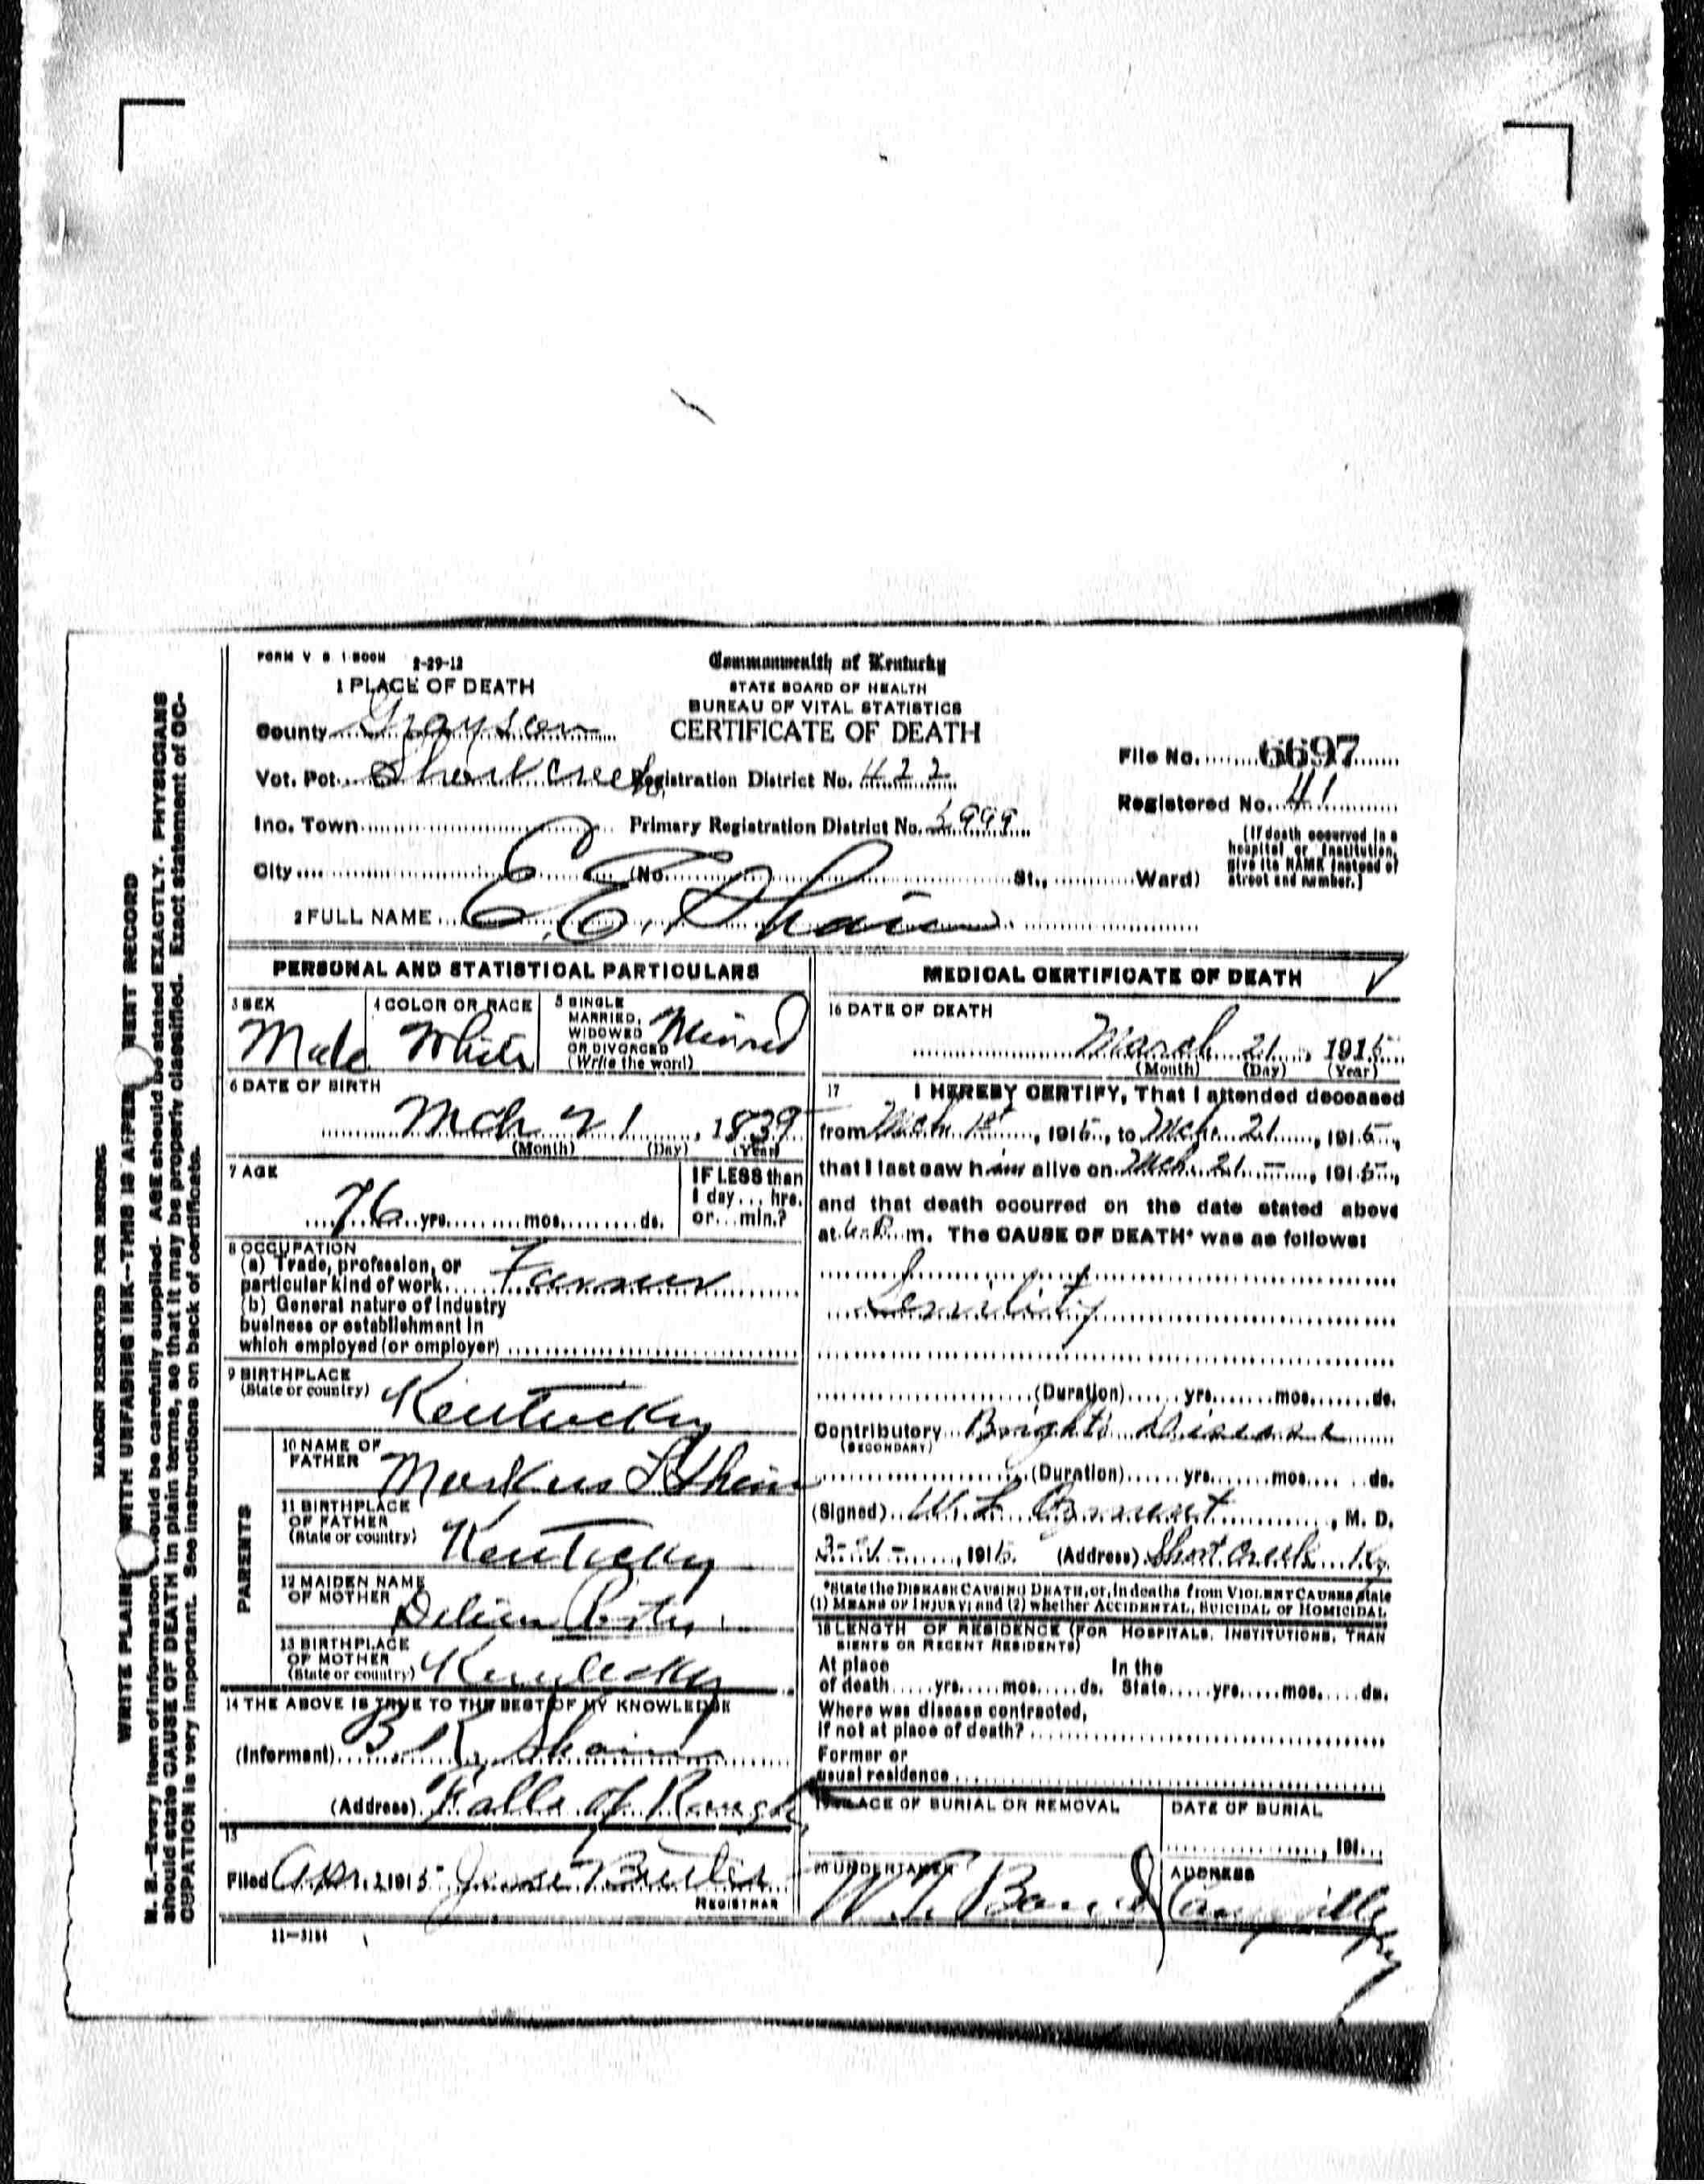 FORM V. S. 1-500M 2-29-12
Commonwealth of Kentucky
STATE BOARD OF HEALTH
BUREAU OF VITAL STATISTICS
CERTIFICATE OF DEATH
1 PLACE OF DEATH
County Grayson
Vot. Pct. Short creek Registration District No. 422
Inc. Town Primary Registration District No. 5999
City (No. St., Ward)
File No. 6697
Registered No. 41
(If death occurred in a
hospital or institution,
give its NAME instead of
street and number.)
2 FULL NAME E. E. Shain
PERSONAL AND STATISTICAL PARTICULARS
3 SEX
Male
4 COLOR OR RACE
White
5 SINGLE
MARRIED,
WIDOWED
OR DIVORCED
(Write the word)
6 DATE OF BIRTH
Mch 21, 1839
(Month) (Day) (Year)
7 AGE
76 yrs. mos. ds.
IF LESS than
1 day... hrs.
or... min.?
8 OCCUPATION
(a) Trade, profession, or
particular kind of work Farmer
(b) General nature of industry
business or establishment in
which employed (or employer)
9 BIRTHPLACE
(State or country) Kentucky
PARENTS
10 NAME OF
FATHER Markus L Shain
11 BIRTHPLACE
OF FATHER
(State or country) Kentucky
12 MAIDEN NAME
OF MOTHER
13 BIRTHPLACE
OF MOTHER
(State or country) Kentucky
14 THE ABOVE IS TRUE TO THE BEST OF MY KNOWLEDGE
(Informant) B. R. Shain
(Address) Falls of Rough
15
Filed Apr. 1, 1915 Jesse Butler
REGISTRAR
11-3184
MEDICAL CERTIFICATE OF DEATH
16 DATE OF DEATH
March 21, 1915
(Month) (Day) (Year)
17 I HEREBY CERTIFY, That I attended deceased
from Mch 1st, 1915, to Mch. 21, 1915,
that I last saw him alive on Mch. 21, 1915,
and that death occurred on the date stated above
at 6 P. m. The CAUSE OF DEATH* was as follows:
Senility
(Duration) yrs. mos. ds.
Contributory Brights Disease
(SECONDARY)
(Duration) yrs. mos. ds.
(Signed) W. L. , M. D.
3-21-, 1915. (Address) Short Creek Ky.
*State the DISEASE CAUSING DEATH, or, in deaths from VIOLENT CAUSES, state
(1) MEANS OF INJURY; and (2) whether ACCIDENTAL, SUICIDAL or HOMICIDAL
18 LENGTH OF RESIDENCE (FOR HOSPITALS, INSTITUTIONS, TRAN
SIENTS OR RECENT RESIDENTS)
At place In the
of death yrs. mos. ds. State yrs. mos. ds.
Where was disease contracted,
if not at place of death?
Former or
usual residence
19 PLACE OF BURIAL OR REMOVAL
DATE OF BURIAL
, 191
20 UNDERTAKER
W. T. Bond
ADDRESS
Caneyville Ky
MARGIN RESERVED FOR BINDING
WRITE PLAINLY WITH UNFADING INK--THIS IS A PERMANENT RECORD
N. B.--Every item of information should be carefully supplied. AGE should be stated EXACTLY. PHYSICIANS
should state CAUSE OF DEATH in plain terms, so that it may be properly classified. Exact statement of OC-
CUPATION is very important. See instructions on back of certificate.